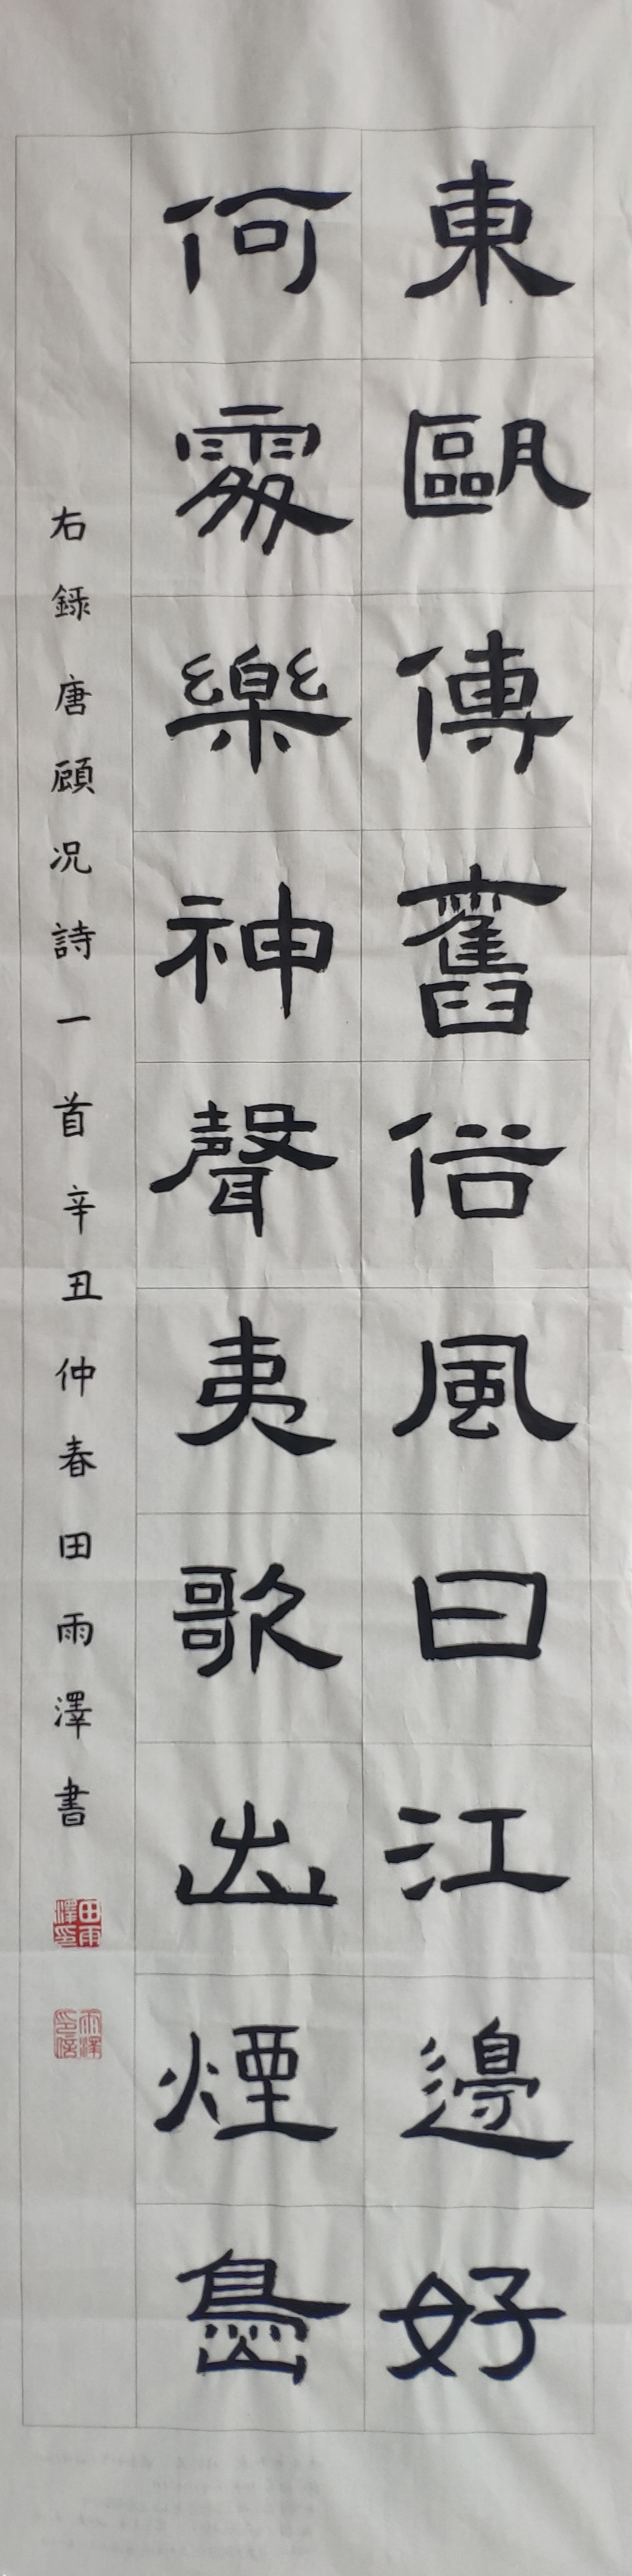 東甌傳舊俗風日江邊好
何處樂神聲夷歌出煙島
右録唐顧况詩一首辛丑仲春田雨澤書
田雨澤印
雨澤印信